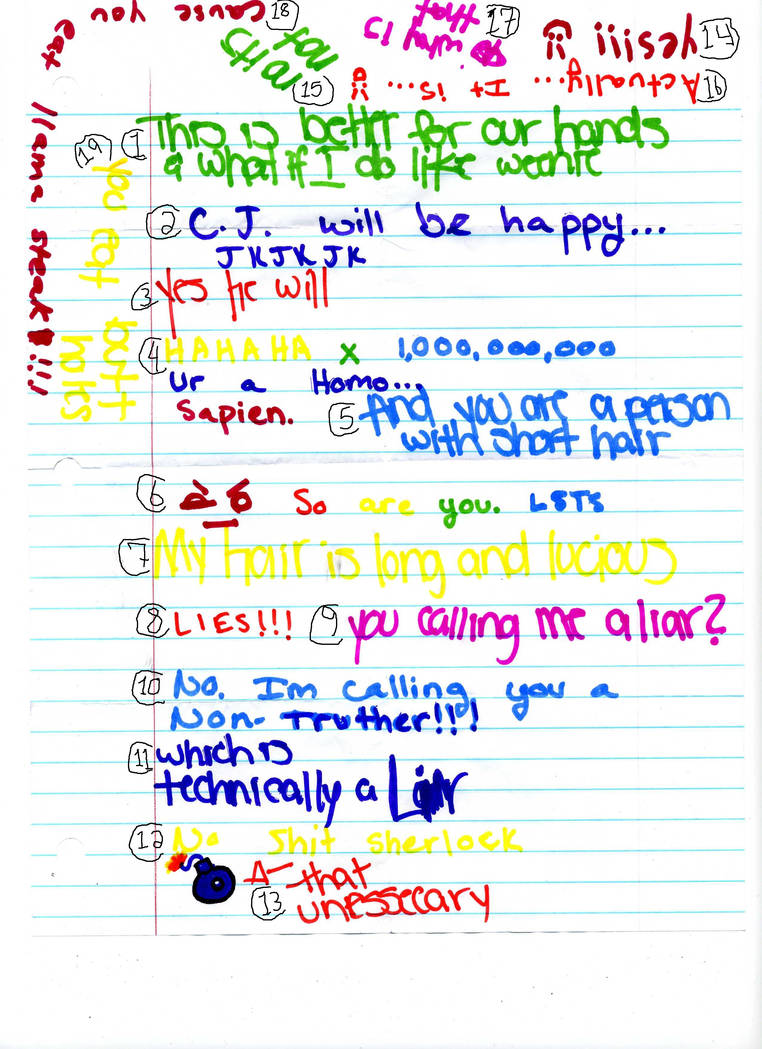 1 This is better for our hands
& what if I do like weenie
2 C.J. will be happy...
JK JK JK
3 yes he will
4 HAHAHA x 1,000,000,000
ur a Homo...
Sapien.
5 And you are a person
with short hair
6 So are you. LSTS
7 My hair is long and lucious
8 LIES!!!
9 you calling me a liar?
10 No. Im calling you a
Non-Truther!!!
11 which is
technically a Liar
12 No shit sherlock
13 that
unessecary
14 yes!!!
15 no its
not
16 Actually... It is...
17 why is
that
18 cause you
eat
llama steak!!!
19 you eat butt
holes